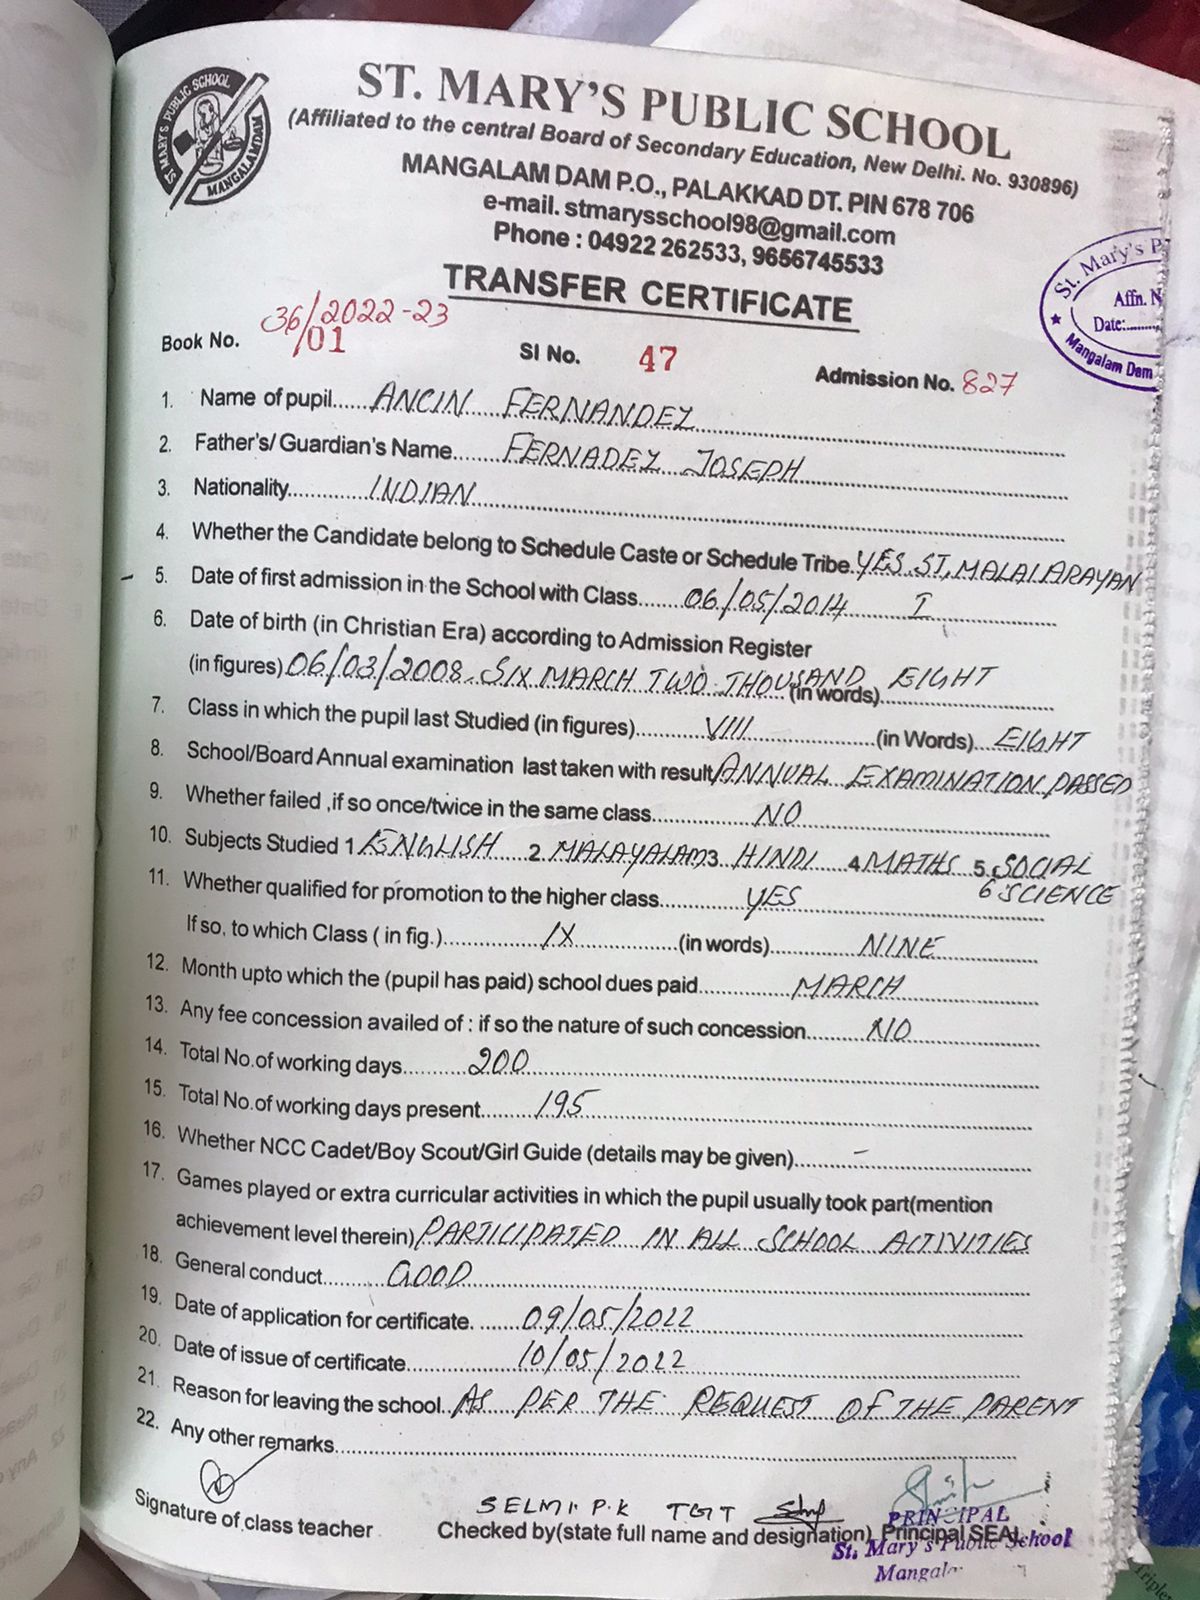 ST. MARY'S PUBLIC SCHOOL
MANGALAMDAM
ST. MARY'S PUBLIC SCHOOL
(Affiliated to the central Board of Secondary Education, New Delhi. No. 930896)
MANGALAM DAM P.O., PALAKKAD DT. PIN 678 706
e-mail. stmarysschool98@gmail.com
Phone : 04922 262533, 9656745533
TRANSFER CERTIFICATE
St. Mary's P
Affn. N
Date:........
Mangalam Dam
Book No. 36/2022-23
/01
SI No. 47
Admission No. 827
1. Name of pupil..... ANCIN FERNANDEZ
2. Father's/ Guardian's Name...... FERNADEZ JOSEPH
3. Nationality............ INDIAN
4. Whether the Candidate belong to Schedule Caste or Schedule Tribe. YES. ST, MALAI ARAYAN
5. Date of first admission in the School with Class...... 06/05/2014 I
6. Date of birth (in Christian Era) according to Admission Register
(in figures) 06/03/2008. SIX MARCH TWO THOUSAND (in words) EIGHT
7. Class in which the pupil last Studied (in figures).......... VIII ..........(in Words)... EIGHT
8. School/Board Annual examination last taken with result ANNUAL EXAMINATION PASSED
9. Whether failed ,if so once/twice in the same class............ NO
10. Subjects Studied 1 ENGLISH 2. MALAYALAM 3. HINDI 4 MATHS 5. SOCIAL
6 SCIENCE
11. Whether qualified for promotion to the higher class............ YES
If so, to which Class ( in fig.)............ IX ............(in words)............ NINE
12. Month upto which the (pupil has paid) school dues paid............ MARCH
13. Any fee concession availed of : if so the nature of such concession........ NO
14. Total No.of working days......... 200
15. Total No.of working days present........ 195
16. Whether NCC Cadet/Boy Scout/Girl Guide (details may be given)........ –
17. Games played or extra curricular activities in which the pupil usually took part(mention
achievement level therein) PARTICIPATED IN ALL SCHOOL ACTIVITIES
18. General conduct........ GOOD
19. Date of application for certificate. ...... 09/05/2022
20. Date of issue of certificate............ 10/05/2022
21. Reason for leaving the school.. AS PER THE REQUEST OF THE PARENT
22. Any other remarks
SELMI P.K TGT
PRINCIPAL
Signature of class teacher
Checked by(state full name and designation) Principal SEAL
St. Mary's Public School